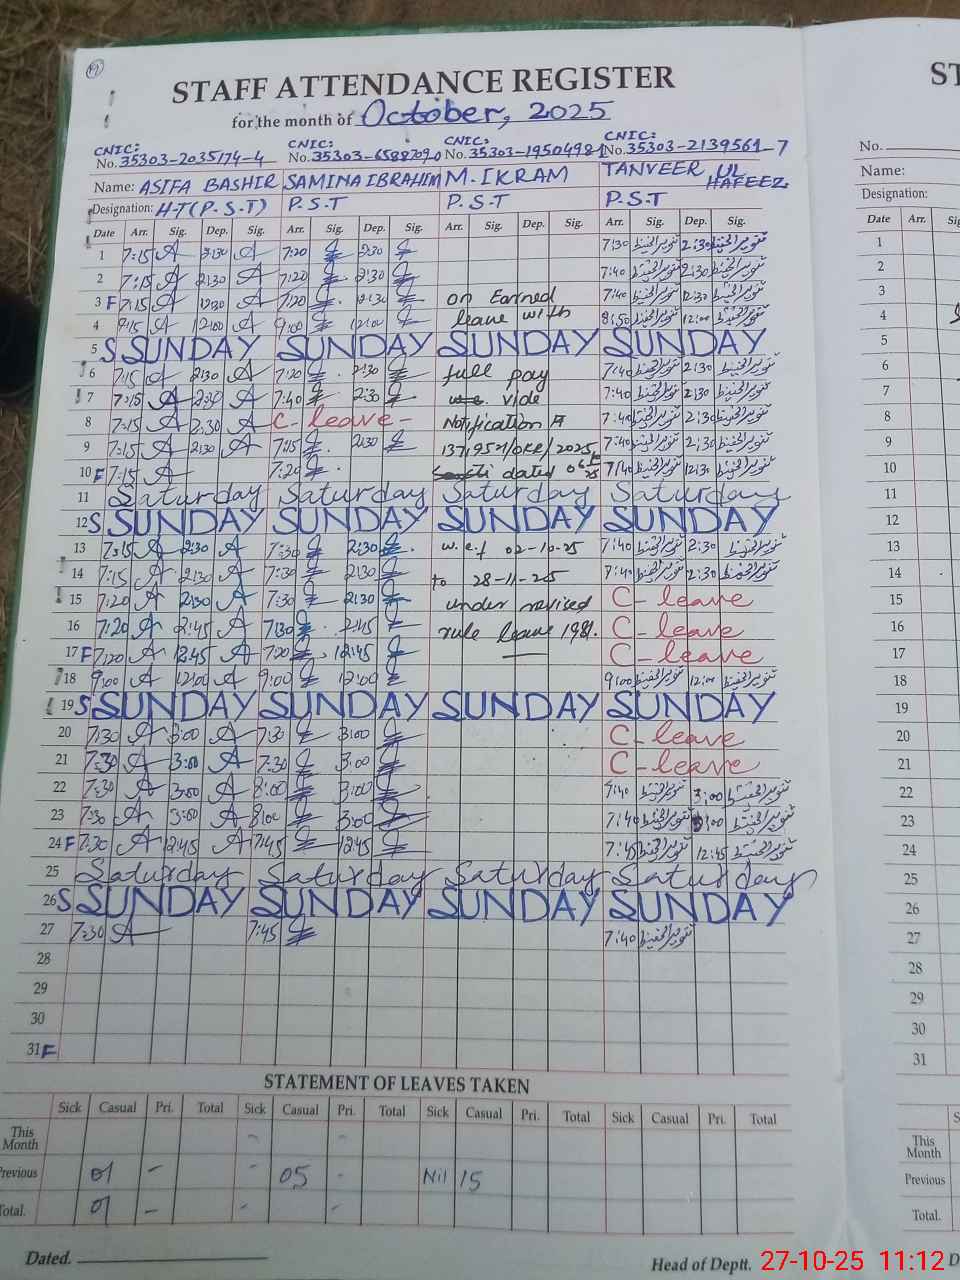 STAFF ATTENDANCE REGISTER
for the month of October, 2025
CNIC: No. 35303-2035174-4 CNIC: No. 35303-6588709-0 CNIC: No. 35303-1950498-1 CNIC: No. 35303-2139561-7
Name: ASIFA BASHIR SAMINA IBRAHIM M. IKRAM TANVEER UL HAFEEZ
Designation: H-T (P.S.T) P.S.T P.S.T P.S.T
Date Arr. Sig. Dep. Sig. Arr. Sig. Dep. Sig. Arr. Sig. Dep. Sig. Arr. Sig. Dep. Sig.
1 7:15 A 2:30 A 7:20 2:30 7:30 تنویر الحفیظ 2:30 تنویر الحفیظ
2 7:15 A 2:30 A 7:20 2:30 7:40 تنویر الحفیظ 2:30 تنویر الحفیظ
3 F 7:15 A 12:30 A 7:20 12:30 on Earned 7:40 تنویر الحفیظ 12:30 تنویر الحفیظ
4 9:15 A 12:00 A 9:00 12:00 leave with 8:50 تنویر الحفیظ 12:00 تنویر الحفیظ
5 S SUNDAY SUNDAY SUNDAY SUNDAY
6 7:15 A 2:30 A 7:20 2:30 full pay 7:40 تنویر الحفیظ 2:30 تنویر الحفیظ
7 7:15 A 2:30 A 7:40 2:30 vide 7:40 تنویر الحفیظ 2:30 تنویر الحفیظ
8 7:15 A 2:30 A C-leave- Notification # 7:40 تنویر الحفیظ 2:30 تنویر الحفیظ
9 7:15 A 2:30 A 7:15 2:30 7:40 تنویر الحفیظ 2:30 تنویر الحفیظ
10 F 7:15 A 7:20 dated 7:40 تنویر الحفیظ 12:30 تنویر الحفیظ
11 Saturday Saturday Saturday Saturday
12 S SUNDAY SUNDAY SUNDAY SUNDAY
13 7:15 A 2:30 A 7:30 2:30 w.e.f 02-10-25 7:40 تنویر الحفیظ 2:30 تنویر الحفیظ
14 7:15 A 2:30 A 7:30 2:30 to 28-11-25 7:40 تنویر الحفیظ 2:30 تنویر الحفیظ
15 7:20 A 2:30 A 7:30 2:30 under revised C-leave
16 7:20 A 2:45 A 7:30 2:45 rule leave 1981. C-leave
17 F 7:20 A 12:45 A 7:20 12:45 C-leave
18 9:00 A 12:00 A 9:00 12:00 9:00 تنویر الحفیظ 12:00 تنویر الحفیظ
19 S SUNDAY SUNDAY SUNDAY SUNDAY
20 7:30 A 3:00 A 7:30 3:00 C-leave
21 7:30 A 3:00 A 7:30 3:00 C-leave
22 7:30 A 3:00 A 8:00 3:00 7:40 تنویر الحفیظ 3:00 تنویر الحفیظ
23 7:30 A 3:00 A 8:00 3:00 7:40 تنویر الحفیظ 3:00 تنویر الحفیظ
24 F 7:30 A 12:45 A 7:45 12:45 7:45 تنویر الحفیظ 12:45 تنویر الحفیظ
25 Saturday Saturday Saturday Saturday
26 S SUNDAY SUNDAY SUNDAY SUNDAY
27 7:30 A 7:45 7:40 تنویر الحفیظ
28
29
30
31 F
STATEMENT OF LEAVES TAKEN
Sick Casual Pri. Total Sick Casual Pri. Total Sick Casual Pri. Total Sick Casual Pri. Total
This Month - -
Previous 01 - - 05 - Nil 15
Total. 01 - - -
Dated.
Head of Deptt.
No.
Name:
Designation:
Date Arr.
1
2
3
4
5
6
7
8
9
10
11
12
13
14
15
16
17
18
19
20
21
22
23
24
25
26
27
28
29
30
31
This Month
Previous
Total.
27-10-25 11:12